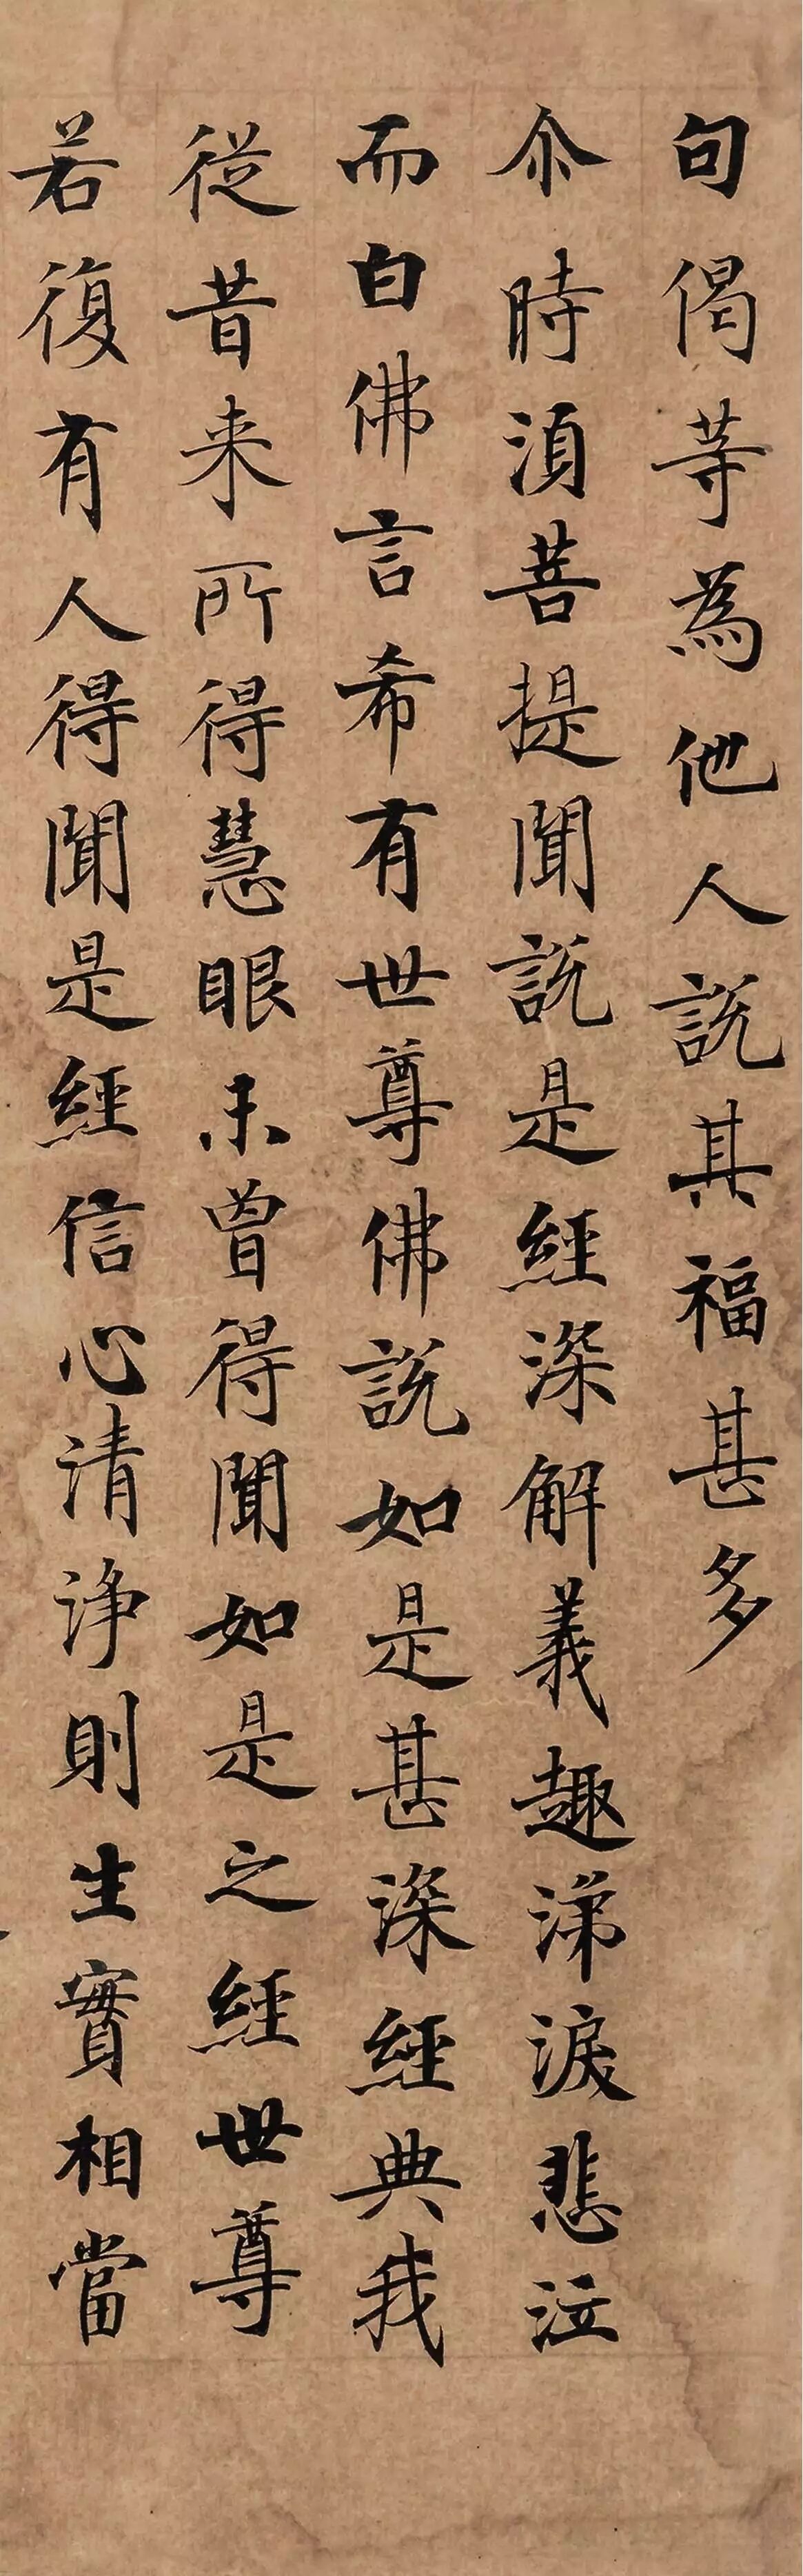 句偈等為他人説其福甚多
尒時湏菩提聞説是經深解義趣涕淚悲泣
而白佛言希有世尊佛説如是甚深經典我
従昔来所得慧眼未曾得聞如是之經世尊
若復有人得聞是經信心清浄則生實相當